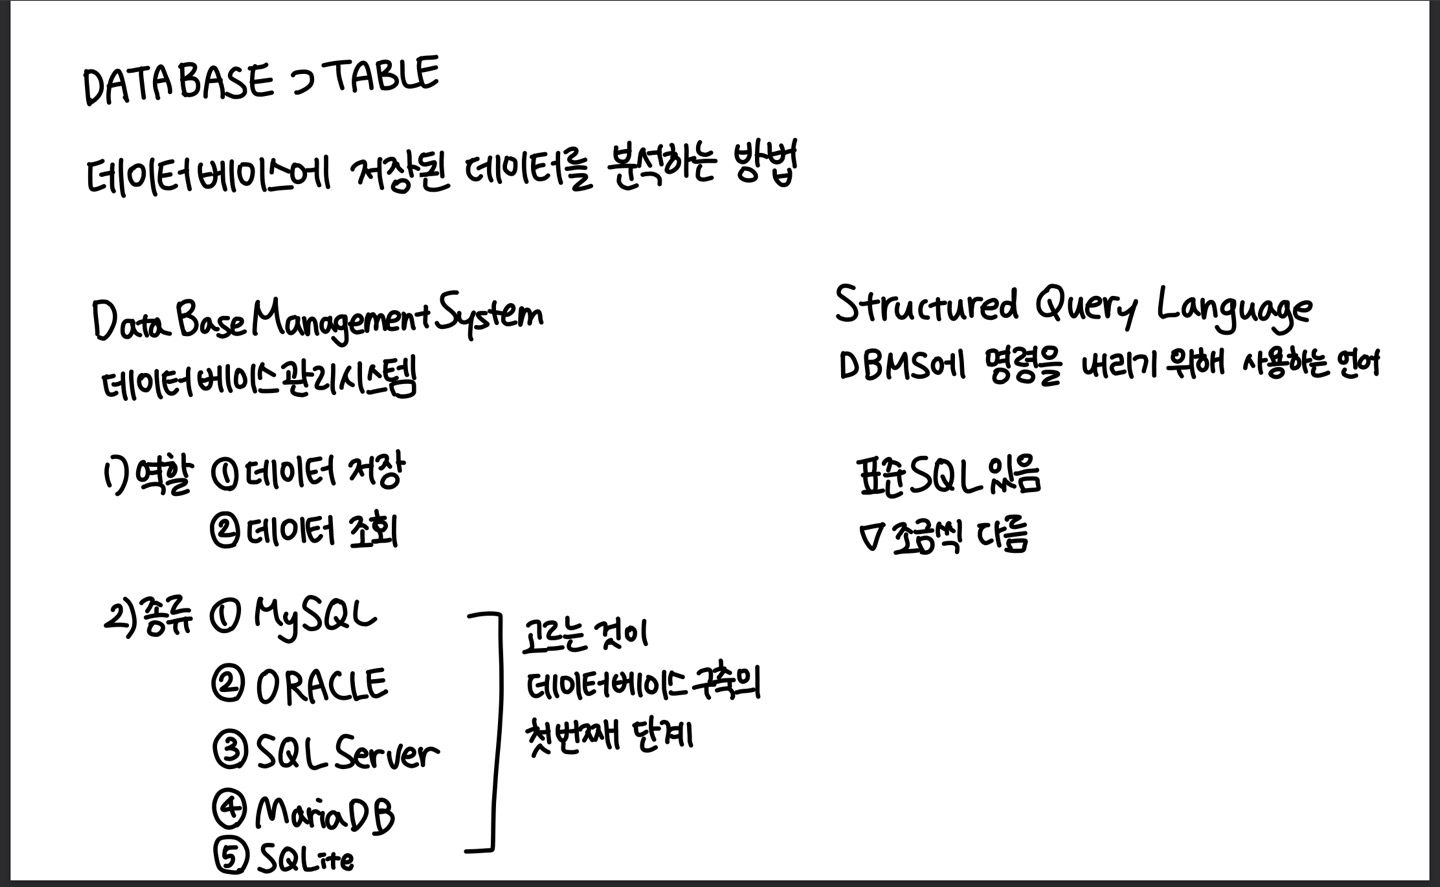 DATABASE ⊃ TABLE
데이터베이스에 저장된 데이터를 분석하는 방법
Data Base Management System
데이터베이스관리시스템
1) 역할 ① 데이터 저장
② 데이터 조회
2) 종류 ① MySQL
② ORACLE
③ SQL Server
④ MariaDB
⑤ SQLite
고르는 것이
데이터베이스 구축의
첫번째 단계
Structured Query Language
DBMS에 명령을 내리기 위해 사용하는 언어
표준SQL 있음
▽ 조금씩 다름